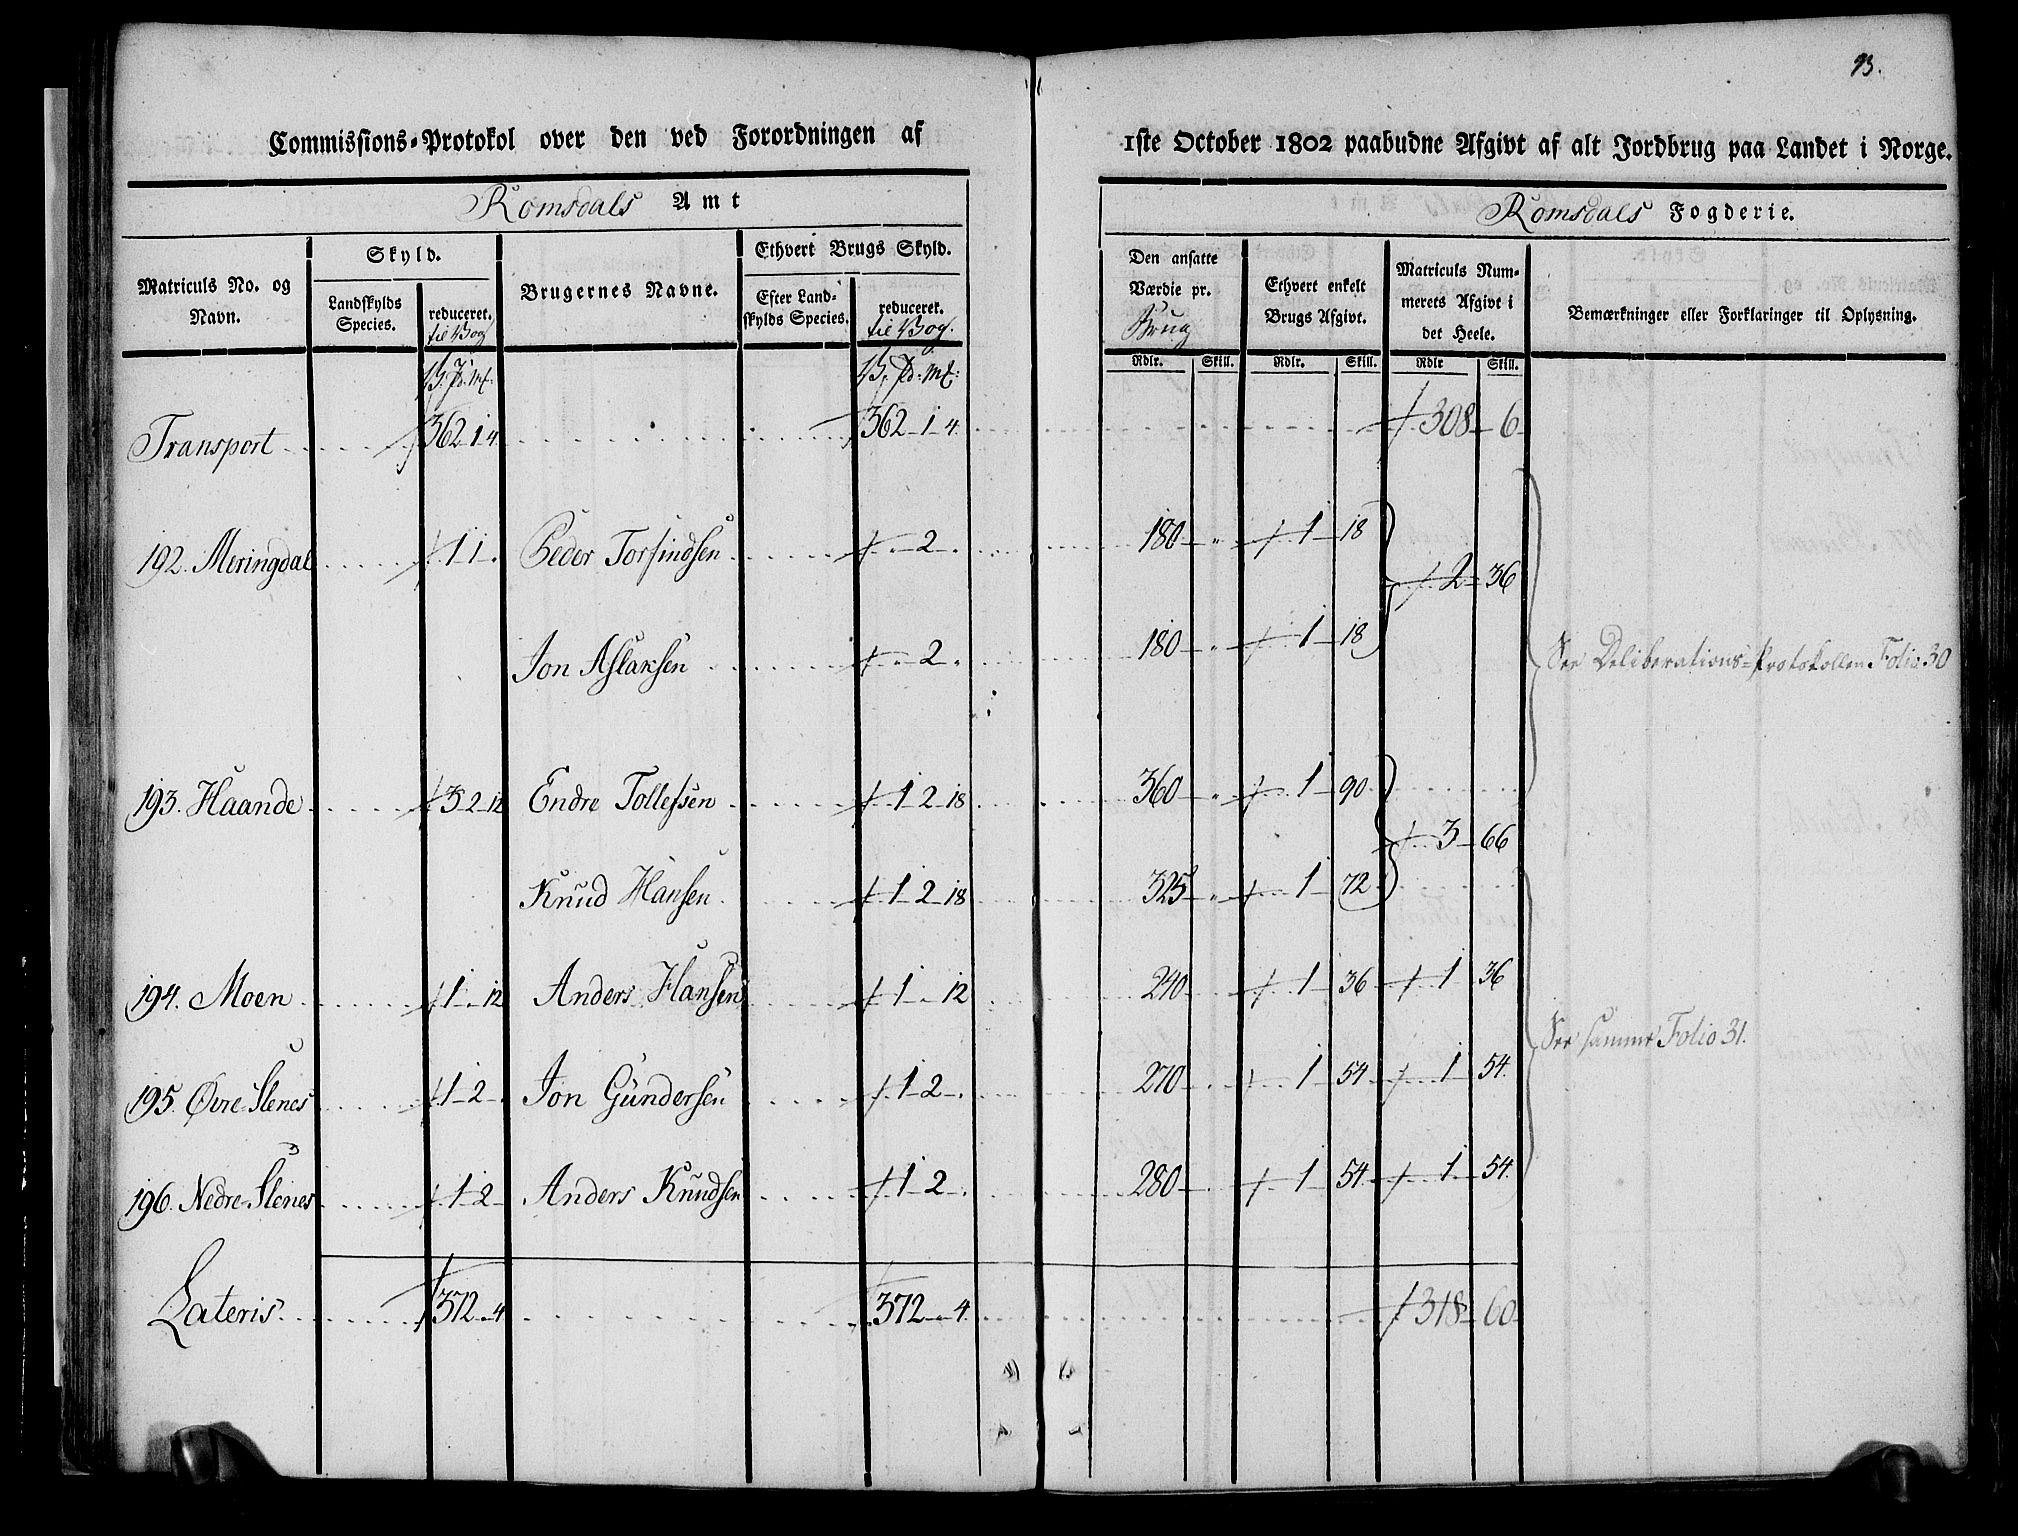 93.
Commissions-Protokol over den ved Forordningen af 1ste October 1802 paabudne Afgivt af alt Jordbrug paa Landet i Norge.
Romsdals Amt
Romsdals Fogderie.
Matriculs No. og Navn.
Skyld.
Landskylds Species.
reduceret. til Vog
Brugernes Navne.
Ethvert Brugs Skyld.
Efter Landskylds Species.
reduceret. til Vog.
Den ansatte Værdie pr. Brug
Ethvert enkelt Brugs Afgivt.
Matriculs Nummerets Afgivt i det Heele.
Bemærkninger eller Forklaringer til Oplysning.
V. Pd. Mk. V. Pd: Mk: Rdlr. Skill. Rdlr. Skill. Rdlr Skill.
Transport 362-1-4 362-1-4. 308-6
192. Meringdal 1 1 . Peder Torfindsen . - 2 - . 180 - " 1 - 18 2 - 36
Jon Aslaksen . - 2 . 180 - " 1 - 18
See Deliberations-Protokollen Folio 30
193. Haande 3-2-12 Endre Tollefsen 1 2-18 360 - " 1 - 90 3 - 66
Knud Hansen 1-2-18 325 - " 1 - 72
194. Moen 1 - 12 Anders Hansen 1 - 12 240 1 36 1 36
See samme Folio 31.
195. Øvre-Slenes 1-2 - . Jon Gundersen 1-2- . 270 1 54 1 54
196. Nedre-Slenes 1-2 Anders Knudsen 1-2- . 280 1 54 1 54.
Lateris 372-"-4 372-"-4. 318-60